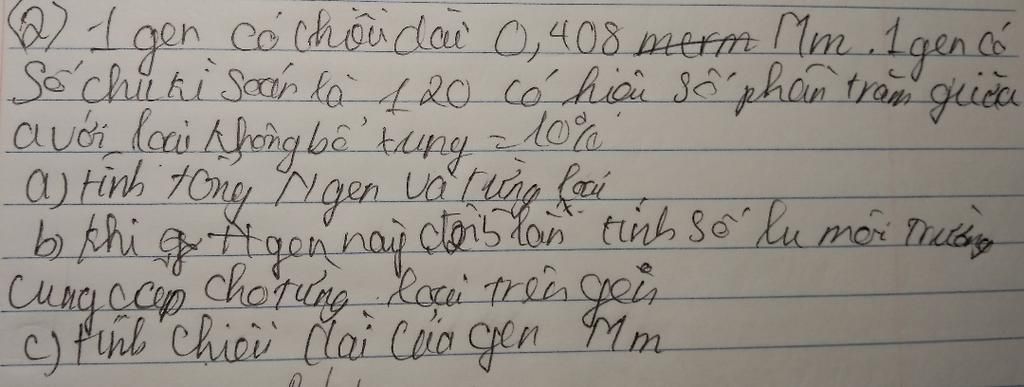 2) 1 gen có chiều dài 0,408 Mm. 1 gen có
số chu kì soắn là 120 có hiệu số phần trăm giữa
a với loại không bổ tung = 10%
a) tính tổng N gen và từng loại
b) khi gen này lần tính số lu môi trường
cung ccep cho từng loại trên gen
c) tính chiều dài của gen Mm